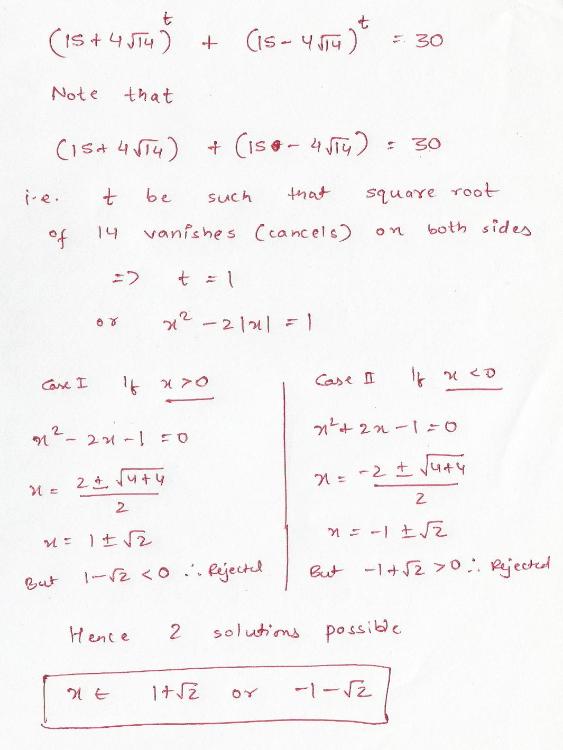 (15 + 4√14)^t + (15 - 4√14)^t = 30
Note that
(15 + 4√14) + (15 - 4√14) = 30
i.e. t be such that square root
of 14 vanishes (cancels) on both sides
=> t = 1
or x² - 2|x| = 1
Case I If x > 0
x² - 2x - 1 = 0
x = (2 ± √4+4)/2
x = 1 ± √2
But 1-√2 < 0 ∴ Rejected
Case II If x < 0
x² + 2x - 1 = 0
x = (-2 ± √4+4)/2
x = -1 ± √2
But -1+√2 > 0 ∴ Rejected
Hence 2 solutions possible
x ∈ 1+√2 or -1-√2